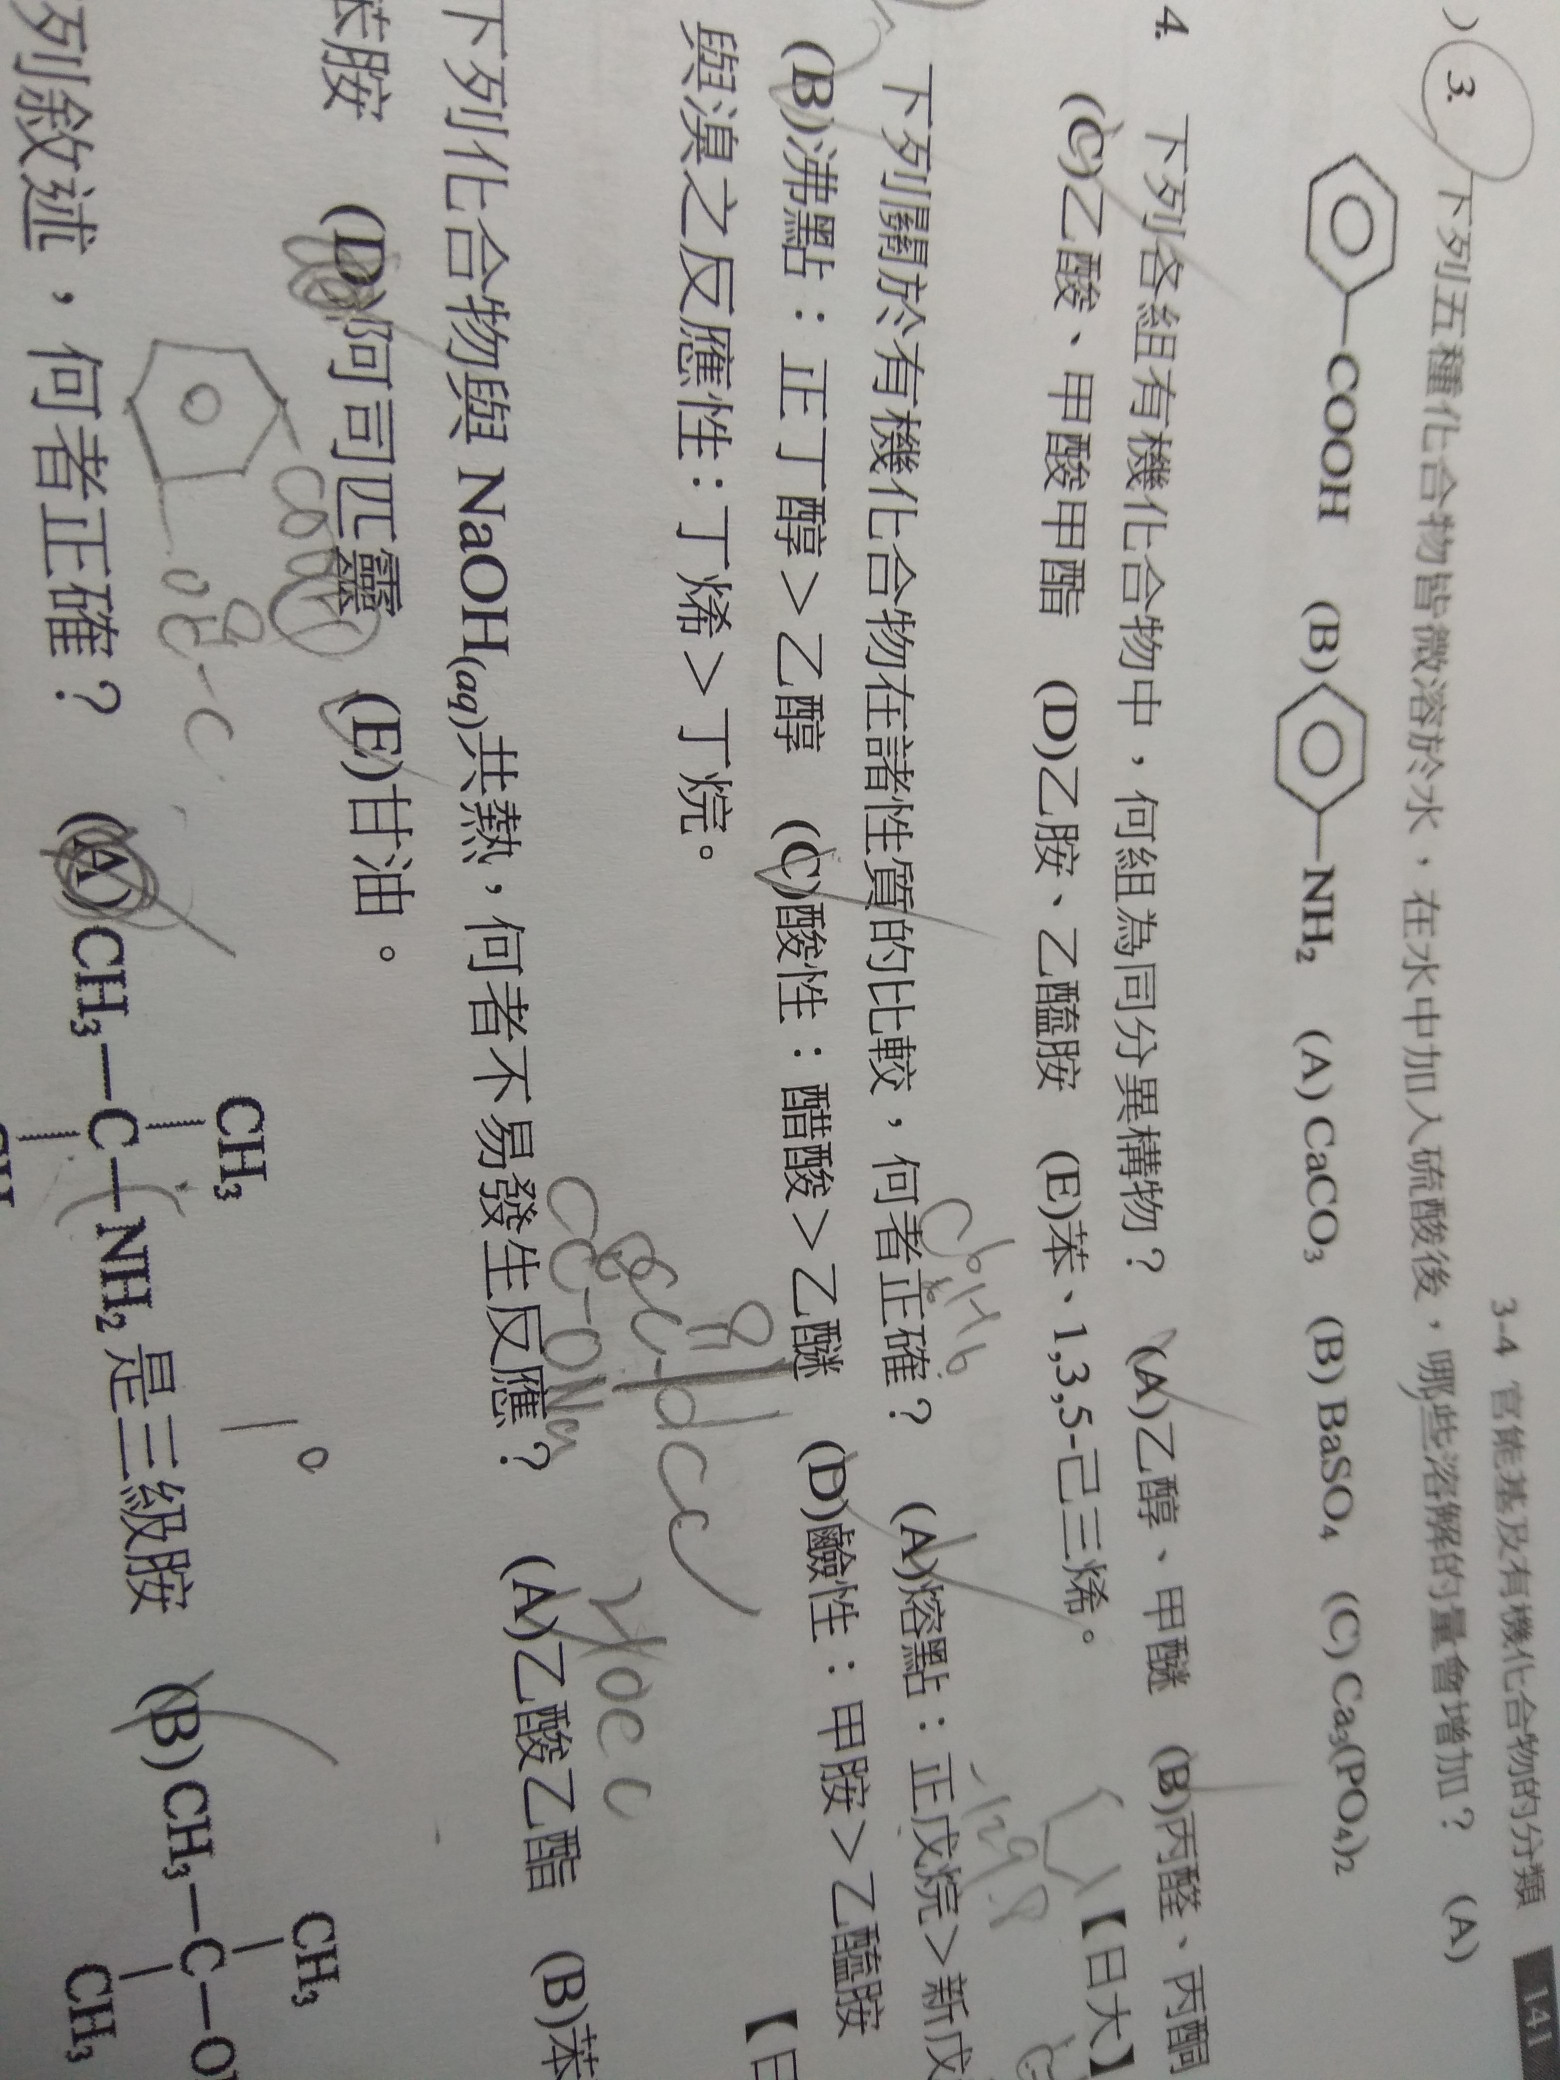 3-4 官能基及有機化合物的分類 141
) 3. 下列五種化合物皆微溶於水，在水中加入硫酸後，哪些溶解的量會增加？ (A)
COOH (B) NH₂ (A) CaCO₃ (B) BaSO₄ (C) Ca₃(PO₄)₂
4. 下列各組有機化合物中，何組為同分異構物？ (A)乙醇、甲醚 (B)丙醛、丙酮
(C)乙酸、甲酸甲酯 (D)乙胺、乙醯胺 (E)苯、1,3,5-己三烯。 【日大】
C₆H₆
-129.8
下列關於有機化合物在諸性質的比較，何者正確？ (A)熔點：正戊烷＞新戊
(B)沸點：正丁醇＞乙醇 (C)酸性：醋酸＞乙醚 (D)鹼性：甲胺＞乙醯胺
與溴之反應性：丁烯＞丁烷。 【日
下列化合物與 NaOH(aq)共熱，何者不易發生反應？ (A)乙酸乙酯 (B)苯
苯胺 (D)阿司匹靈 (E)甘油。
1°
CH₃ CH₃
列敘述，何者正確？ (A)CH₃—C—NH₂是三級胺 (B)CH₃—C—O
CH₃